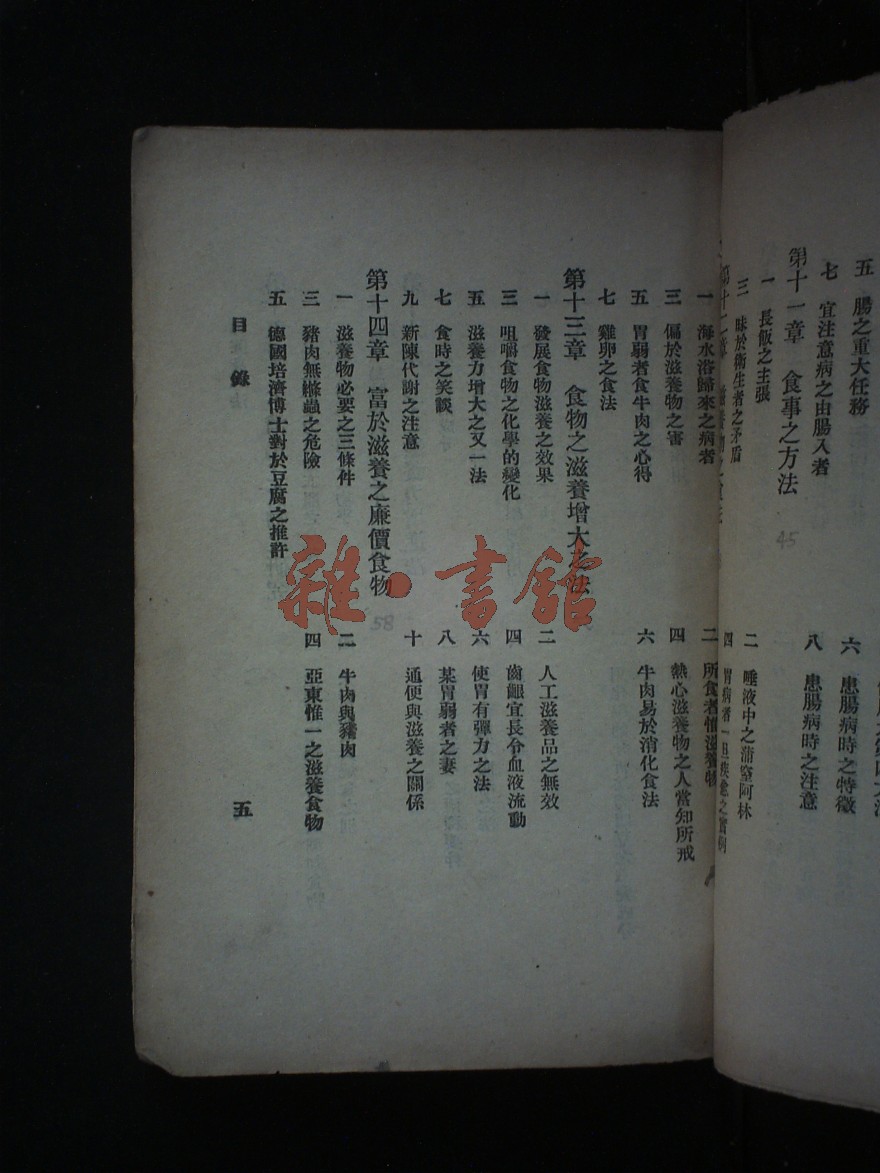 五　腸之重大任務
六　患腸病時之特徵
七　宜注意病之由腸入者
八　患腸病時之注意
第十一章　食事之方法
45
一　長飯之主張
二　唾液中之蒲窒阿林
三　昧於衛生者之矛盾
一　海水浴歸來之病者
二　所食者惟滋養物
三　偏於滋養物之害
四　熱心滋養物之人當知所戒
五　胃弱者食牛肉之心得
六　牛肉易於消化食法
七　雞卵之食法
第十三章　食物之滋養增大之法
一　發展食物滋養之效果
二　人工滋養品之無效
三　咀嚼食物之化學的變化
四　齒齦宜長令血液流動
五　滋養力增大之又一法
六　使胃有彈力之法
七　食時之笑談
八　某胃弱者之妻
九　新陳代謝之注意
十　通便與滋養之關係
第十四章　富於滋養之廉價食物
58
一　滋養物必要之三條件
二　牛肉與豬肉
三　豬肉無絛蟲之危險
四　亞東惟一之滋養食物
五　德國培濟博士對於豆腐之推許
目錄
五
雜·書館